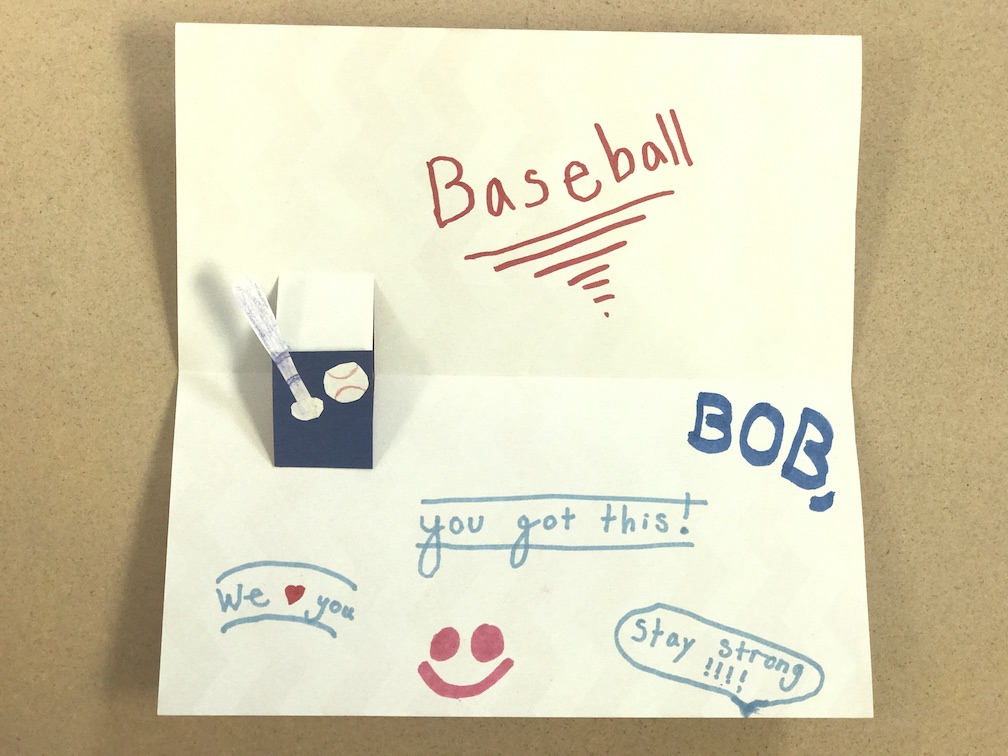 Baseball
BOB,
you got this!
We ♥ you
Stay strong
!!!!